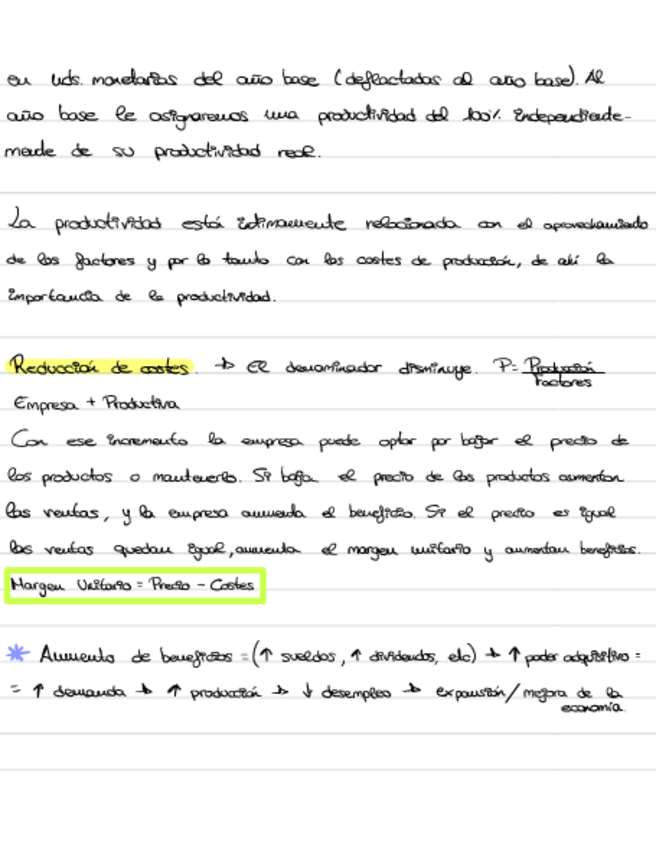 en uds. monetarias del año base (deflactadas al año base). Al
año base le asignaremos una productividad del 100% independiente-
mente de su productividad real.
La productividad está íntimamente relacionada con el aprovechamiento
de los factores y por lo tanto con los costes de producción, de ahí la
importancia de la productividad.
Reducción de costes. → El denominador disminuye. P = Producción
Factores
Empresa + Productiva
Con ese incremento la empresa puede optar por bajar el precio de
los productos o mantenerlo. Si baja el precio de los productos aumentan
las ventas, y la empresa aumenta el beneficio. Si el precio es igual
las ventas quedan igual, aumenta el margen unitario y aumentan beneficios.
Margen Unitario = Precio - Costes
* Aumento de beneficios = (↑ sueldos, ↑ dividendos, etc) → ↑ poder adquisitivo =
= ↑ demanda → ↑ producción → ↓ desempleo → expansión/mejora de la
economía.